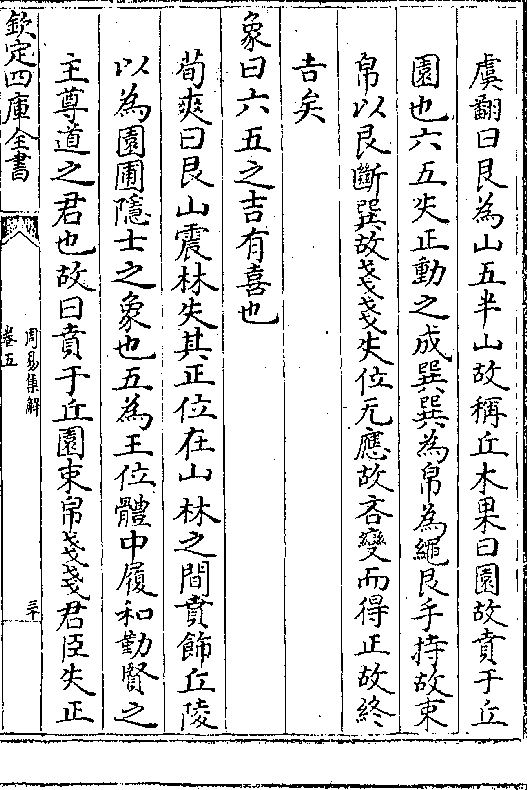 虞翻曰艮為山五半山故稱丘木果曰園故賁于丘
園也六五失正動之成巽巽為帛為繩艮手持故束
帛以艮斷巽故戔戔失位无應故吝變而得正故終
吉矣
象曰六五之吉有喜也
荀爽曰艮山震林失其正位在山林之間賁飾丘陵
以為園圃隱士之象也五為王位體中履和勤賢之
主尊道之君也故曰賁于丘園束帛戔戔君臣失正
欽定四庫全書
周易集解
卷五
三十